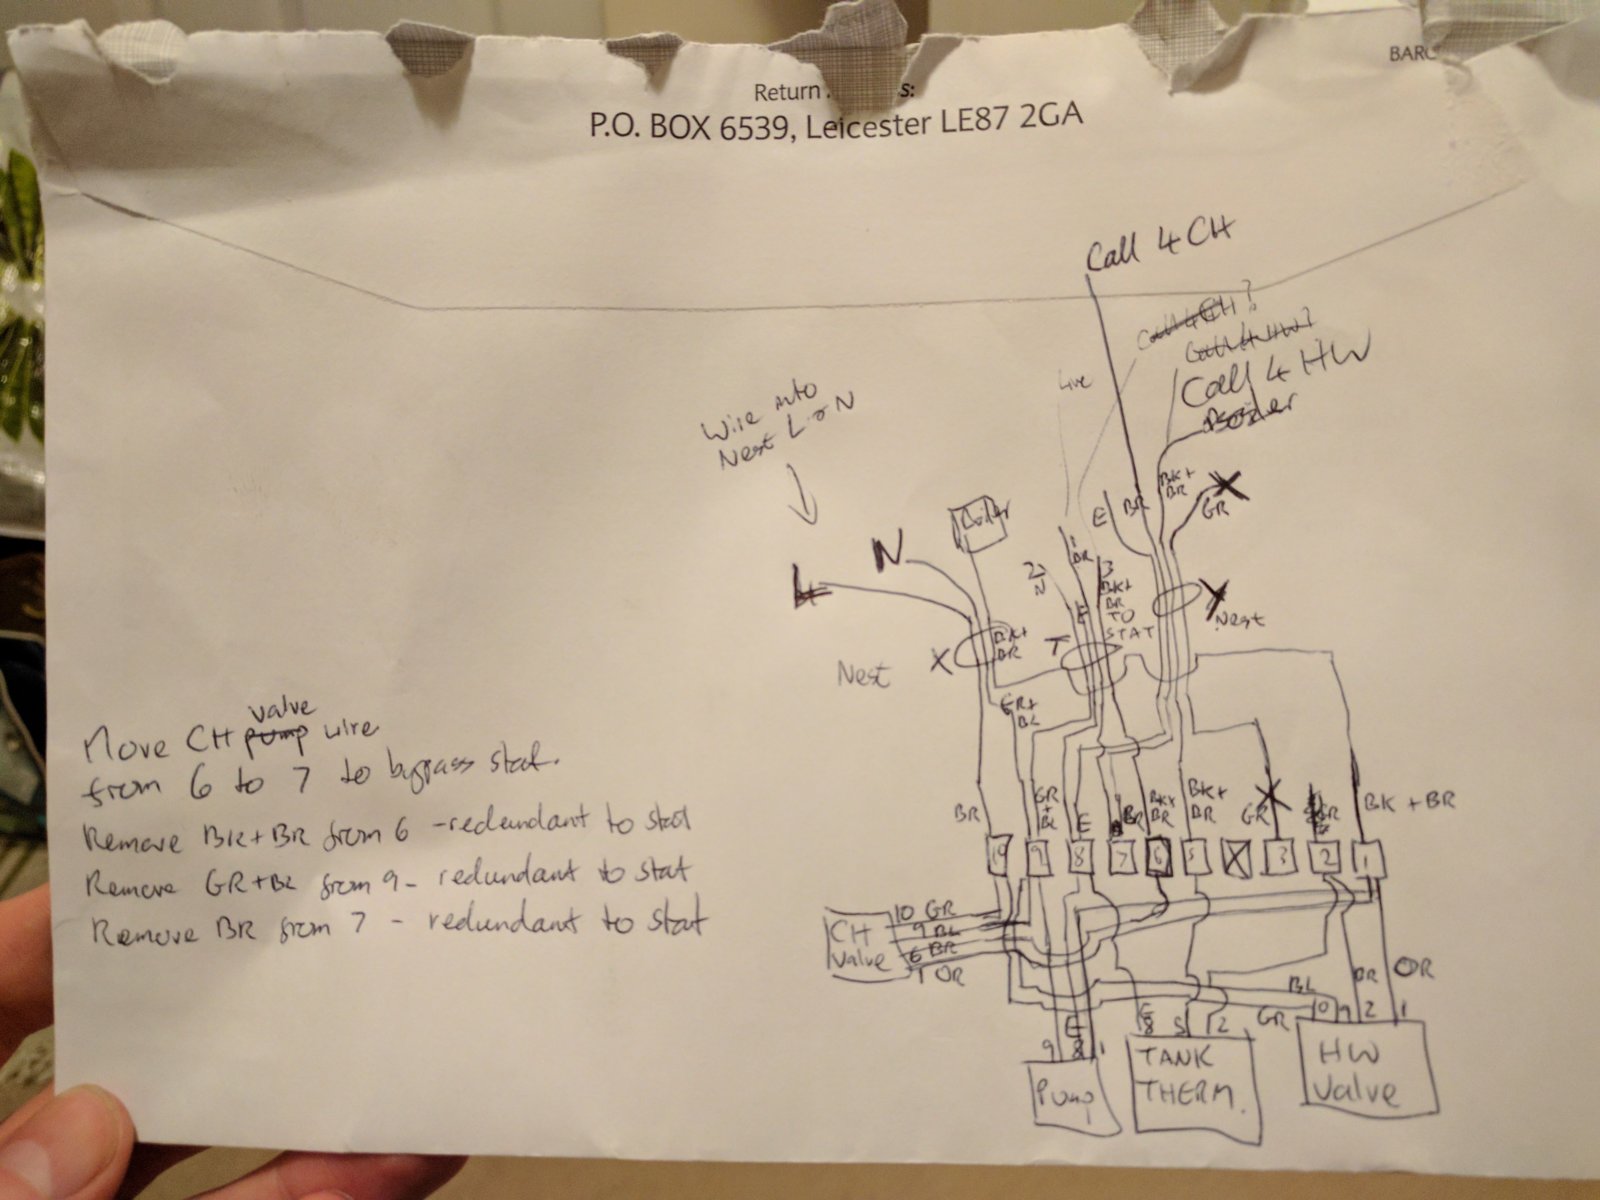 BARC
Return
P.O. BOX 6539, Leicester LE87 2GA
Call 4 CH
Call 4 CH?
Call 4 HW?
Call 4 HW
Boiler
Live
Wire into
Nest L or N
L
N
Boiler
2
N
1
BR
3
BK+
BR
TO
STAT
E
E
BR
BK+
BR
GR
X
X
Nest
X
Nest
BK+
BR
GR+
BL
Move CH pump valve wire
from 6 to 7 to bypass stat.
Remove BK+BR from 6 - redundant to stat
Remove GR+BL from 9 - redundant to stat
Remove BR from 7 - redundant to stat
BR
GR
+
BL
E
BR
BK+
BR
BK+
BR
GR
BK + BR
10 9 8 7 6 5 X 3 2 1
CH
Valve
10 GR
9 BL
6 BR
1 OR
BL
GR
BR
OR
9
E
8
1
Pump
E
8
5
2
TANK
THERM.
10 9 2 1
HW
Valve